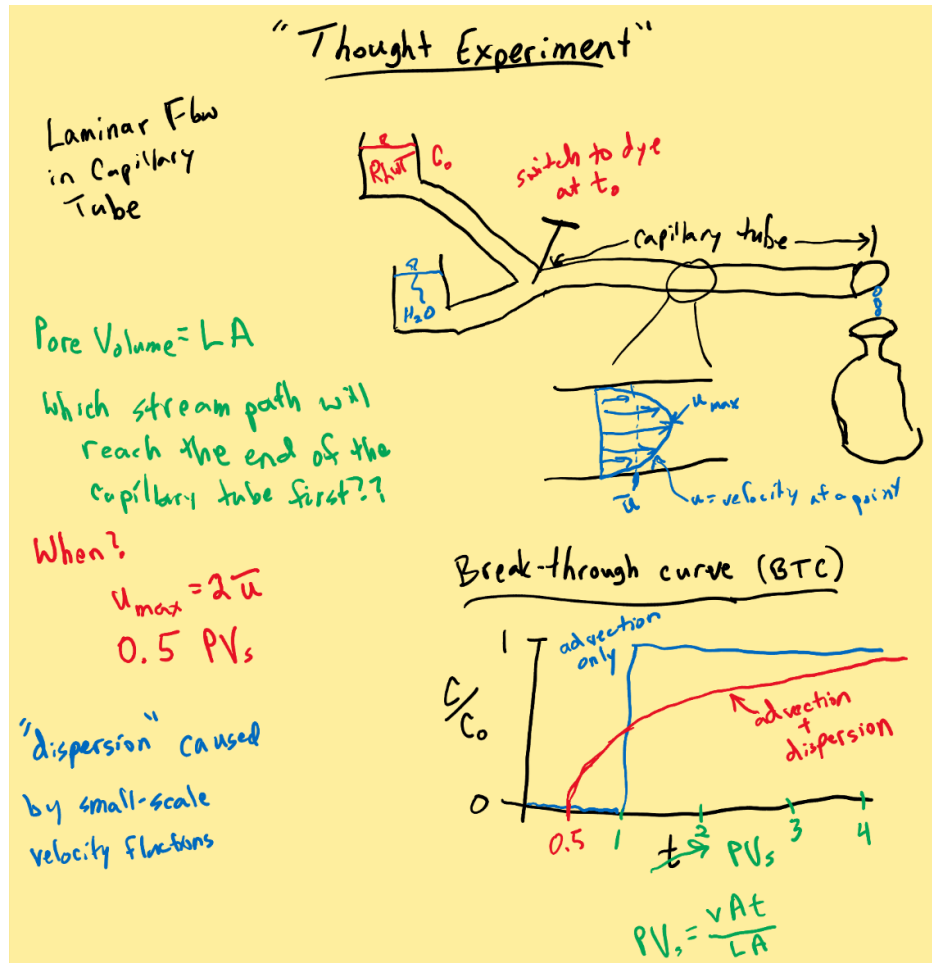 "Thought Experiment"
Laminar Flow
in Capillary
Tube
RhWT
C₀
switch to dye
at t₀
capillary tube
H₂O
Pore Volume = LA
Which stream path will
reach the end of the
capillary tube first??
u max
ū
u = velocity at a point
When?
u max = 2 ū
0.5 PVs
"dispersion" caused
by small-scale
velocity fluctions
Break-through curve (BTC)
1
C/C₀
0
advection
only
advection
+
dispersion
0.5 1 2 3 4
t → PVs
PVs = vAt / LA